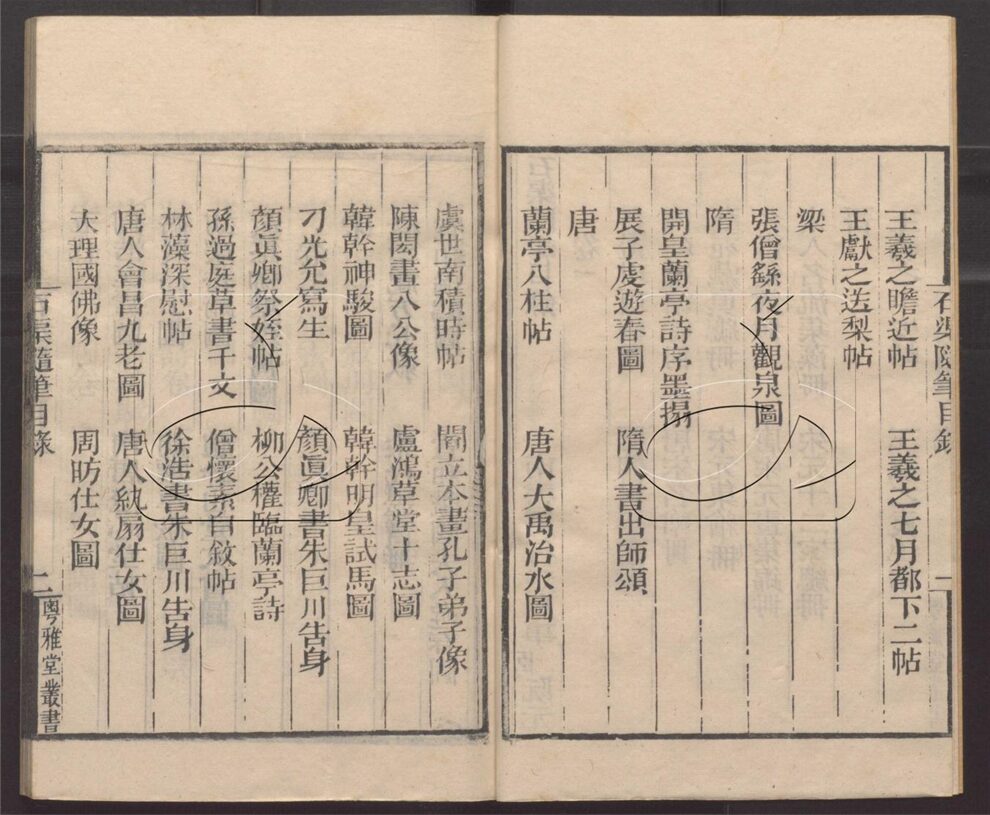 王羲之瞻近帖　王羲之七月都下二帖
王獻之送梨帖
梁
張僧繇夜月觀泉圖
隋
開皇蘭亭詩序墨搨
展子虔遊春圖　隋人書出師頌
唐
蘭亭八柱帖　唐人大禹治水圖
石渠隨筆目錄
虞世南積時帖　閻立本畫孔子弟子像
陳閎畫八公像　盧鴻草堂十志圖
韓幹神駿圖　韓幹明皇試馬圖
刁光允寫生　顏眞卿書朱巨川告身
顏眞卿祭姪帖　柳公權臨蘭亭詩
孫過庭草書千文　僧懷素自敘帖
林藻深慰帖　徐浩書朱巨川告身
唐人會昌九老圖　唐人紈扇仕女圖
大理國佛像　周昉仕女圖
石渠隨筆目錄　二　粵雅堂叢書